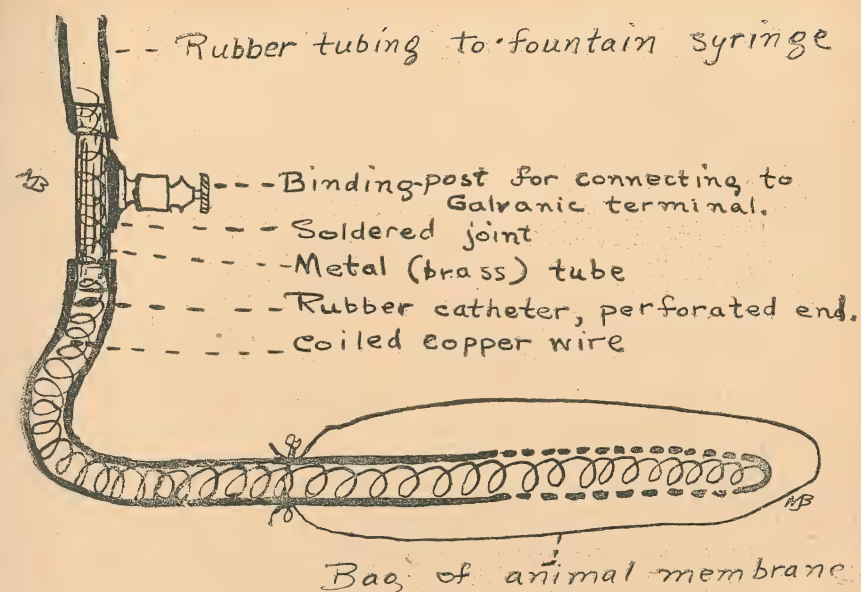 Rubber tubing to fountain syringe
Binding-post for connecting to
Galvanic terminal.
Soldered joint
Metal (brass) tube
Rubber catheter, perforated end.
Coiled copper wire
MB
MB
Bag of animal membrane